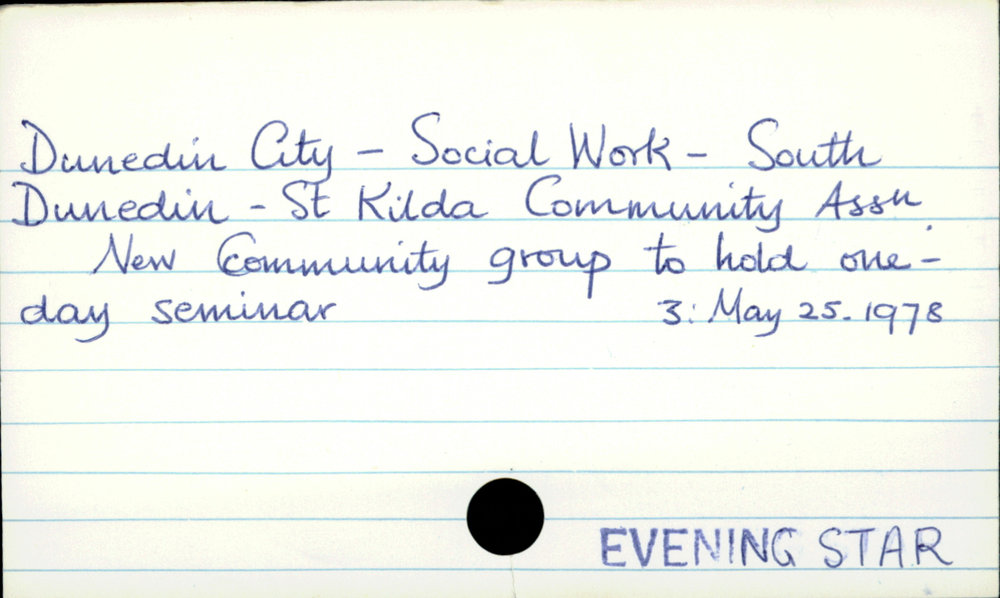 Dunedin City - Social Work - South
Dunedin - St Kilda Community Assn.
New Community group to hold one-
day seminar 3: May 25. 1978
EVENING STAR